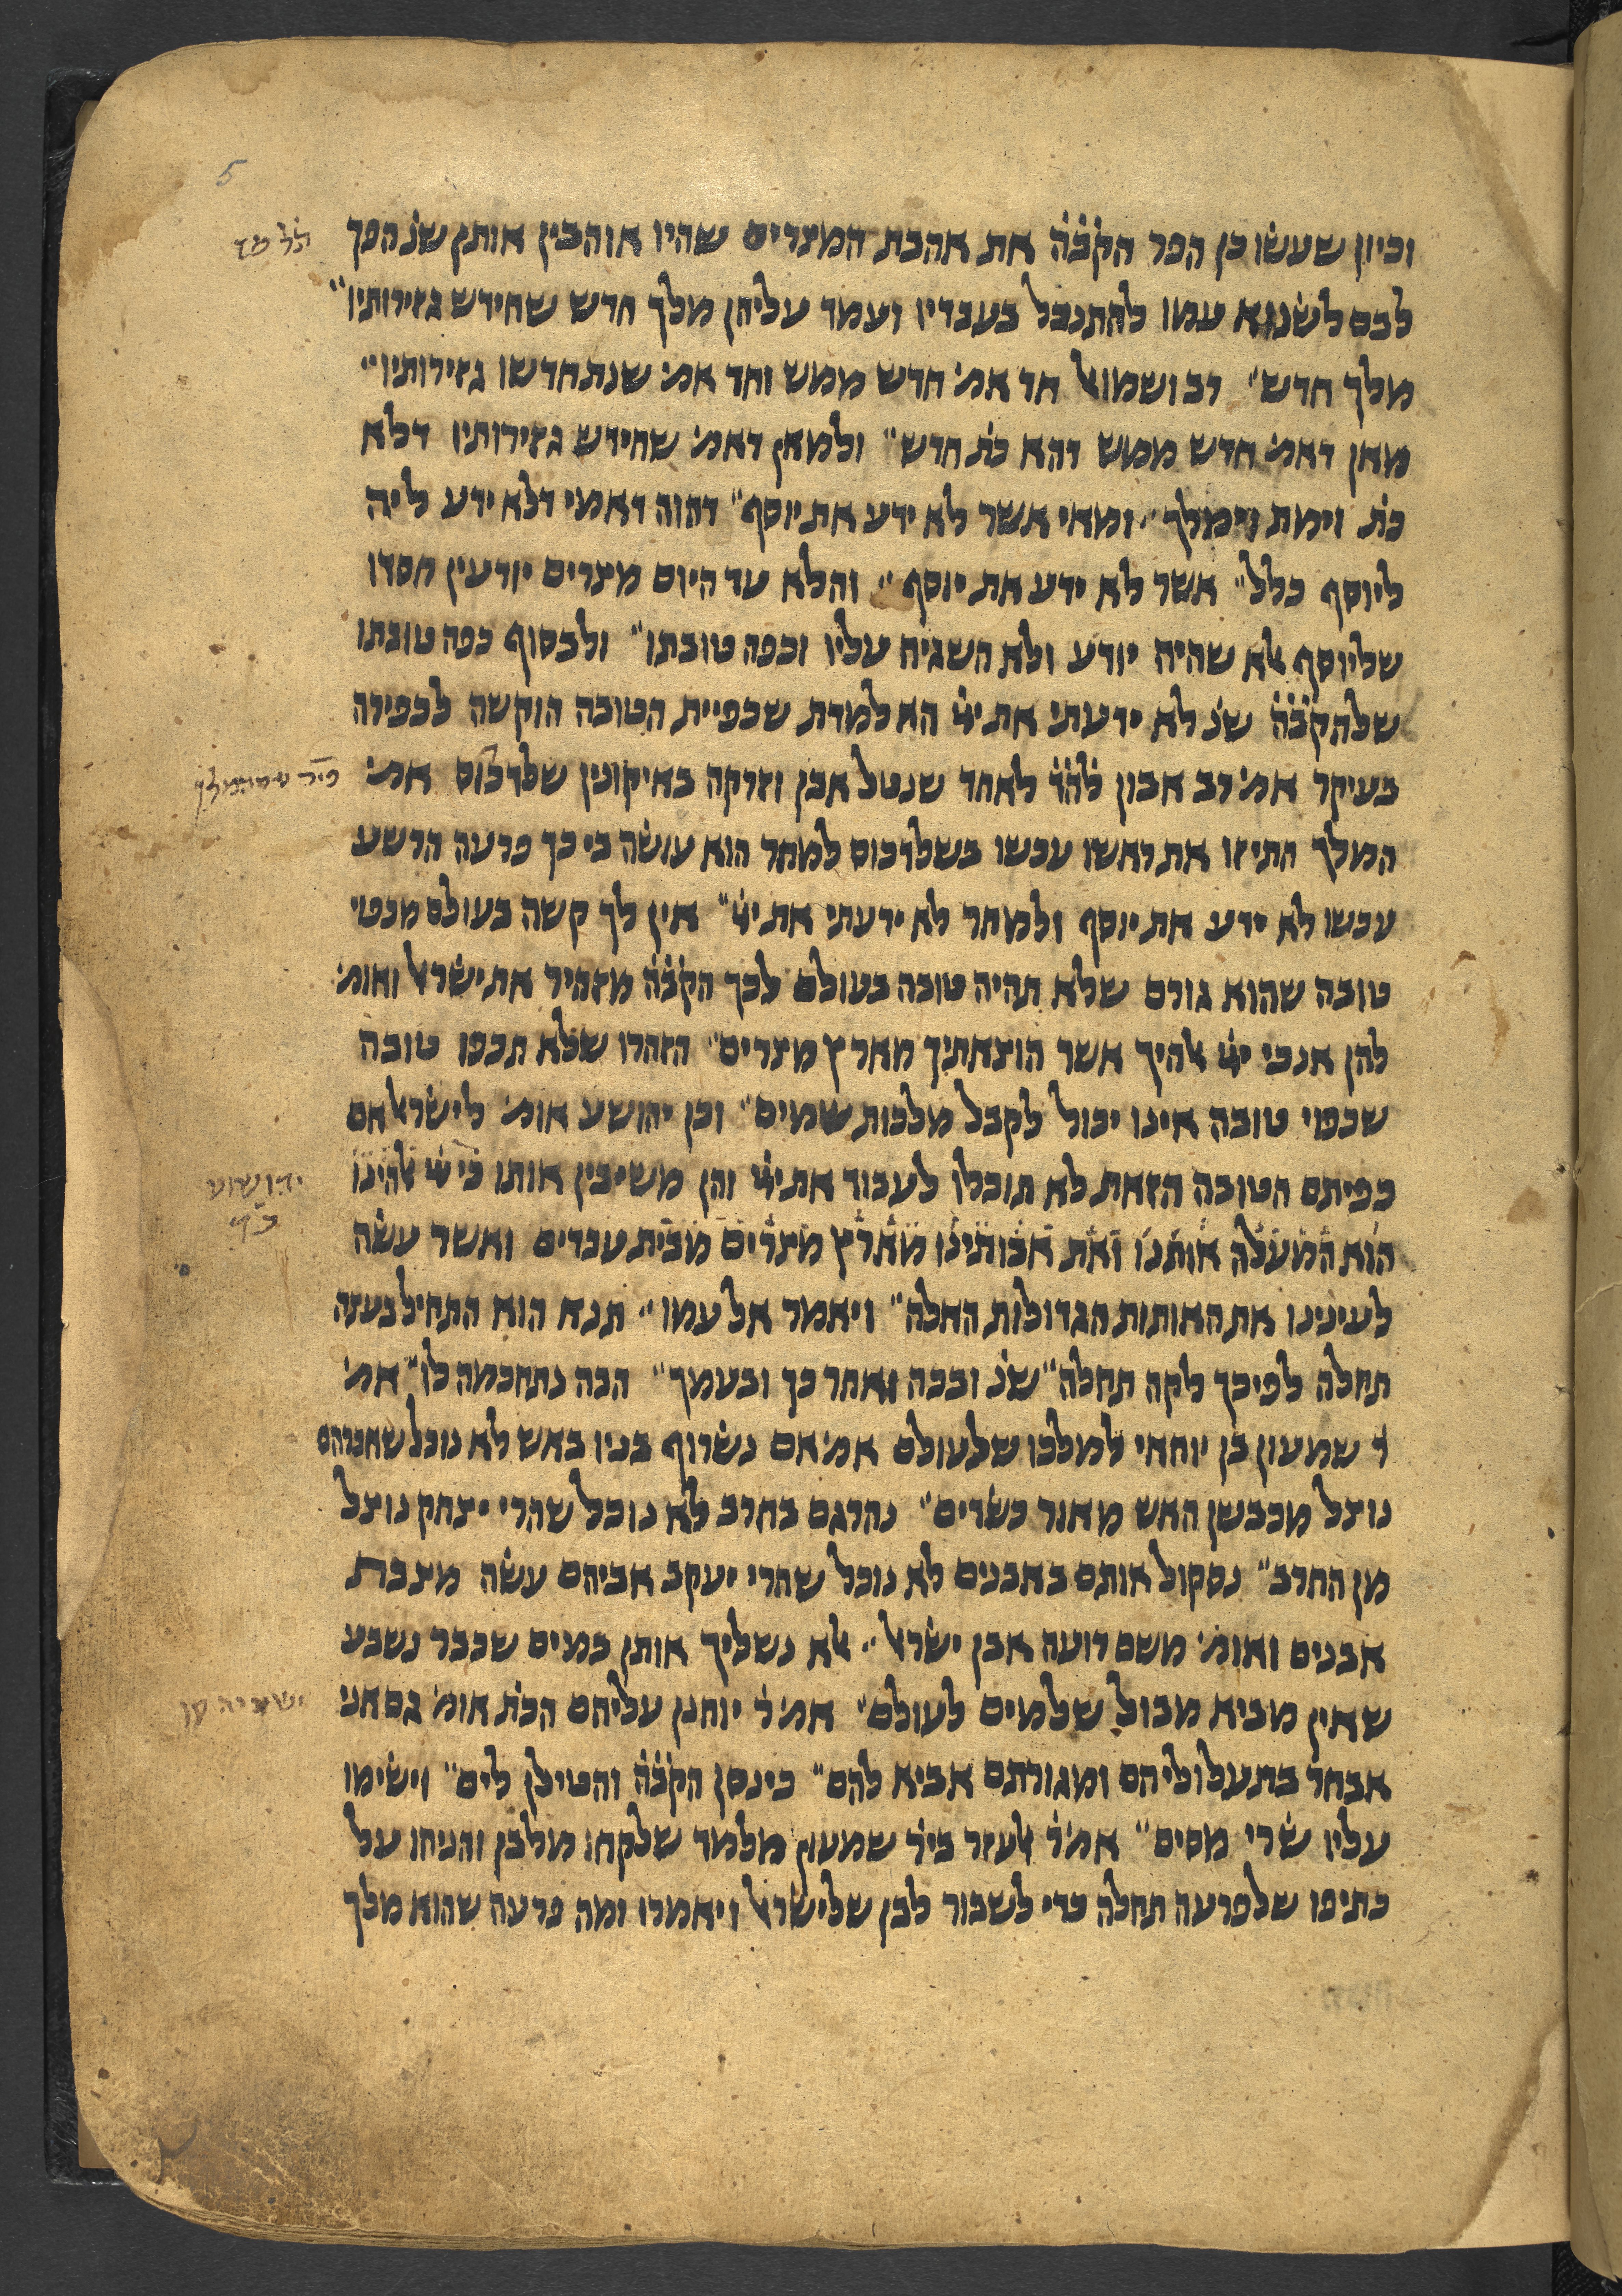 5
וכיון שעשו כן הפר הקב̇ה̇ את אהבת המצרים שהיו אוהבין אותן שנ̇ הפך
לבם לשנוא עמו להתנכל בעבדיו ועמד עליהן מלך חדש שחידש גזירותיו״
מלך חדש״ רב ושמואל חד אמ׳ חדש ממש וחד אמ׳ שנתחדשו גזירותיו״
מאן דאמ׳ חדש ממש דהא כת̇ חדש״ ולמאן דאמ׳ שחידש גזירותיו דלא
כת̇ וימת וימלך״ ומאי אשר לא ידע את יוסף״ דהוה דאמי דלא ידע ליה
ליוסף כלל״ אשר לא ידע את יוסף״ והלא עד היום מצרים יודעין חסדו
שליוסף אלא שהיה יודע ולא השגיח עליו וכפה טובתו״ ולבסוף כפה טובתו
שלהקב̇ה̇ שנ̇ לא ידעתי את ייי הא למדת שכפיית הטובה הוקשה לכפירה
בעיקר אמ׳ רב אבון להד̇ לאחד שנטל אבן וזרקה באיקונין שלדכוס אמ׳
המלך התיזו את ראשו עכשו בשלדכוס למחר הוא עושה בי כך פרעה הרשע
עכשו לא ידע את יוסף ולמחר לא ידעתי את ייי״ אין לך קשה בעולם מכפוי
טובה שהוא גורם שלא תהיה טובה בעולם לכך הקב̇ה̇ מזהיר את ישראל ואומ׳
להן אנכי ייי אלהיך אשר הוצאתיך מארץ מצרים״ הזהרו שלא תכפו טובה
שכפוי טובה אינו יכול לקבל מלכות שמים״ וכן יהושע אומ׳ לישראל אם
כפיתם הטובה הזאת לא תוכלו לעבוד את ייי והן משיבין אותו כי ייי אלהינו
הוא המעלה אותנו ואת אבותינו מארץ מצרים מבית עבדים ואשר עשה
לעינינו את האותות הגדולות האלה״ ויאמר אל עמו״ תנא הוא התחיל בעצה
תחלה לפיכך לקה תחלה״ שנ̇ ובכה ואחר כך ובעמך״ הבה נתחכמה לו״ אמ׳
ר̇ שמעון בן יוחאי למלכו שלעולם אמ׳ אם נשרוף בניו באש לא נוכל שאברהם
נוצל מכבשן האש מאור כשדים״ נהרגם בחרב לא נוכל שהרי יצחק נוצל
מן החרב״ נסקול אותם באבנים לא נוכל שהרי יעקב אביהם עשה מצבת
אבנים ואומ׳ משם רועה אבן ישראל״ אלא נשליך אותן במים שכבר נשבע
שאין מביא מבול שלמים לעולם״ אמ׳ ר̇ יוחנן עליהם הכת̇ אומ׳ גם אני
אבחר בתעלוליהם ומגורתם אביא להם״ כינסן הקב̇ה̇ והטילן לים״ וישימו
עליו שרי מסים״ אמ׳ ר̇ אלעזר ביר̇ שמעון מלמד שלקחו מלבן והניחו על
כתיפו שלפרעה תחלה כדי לשבור לבן שלישראל ויאמרו ומה פרעה שהוא מלך
יהושוע
כ״ד